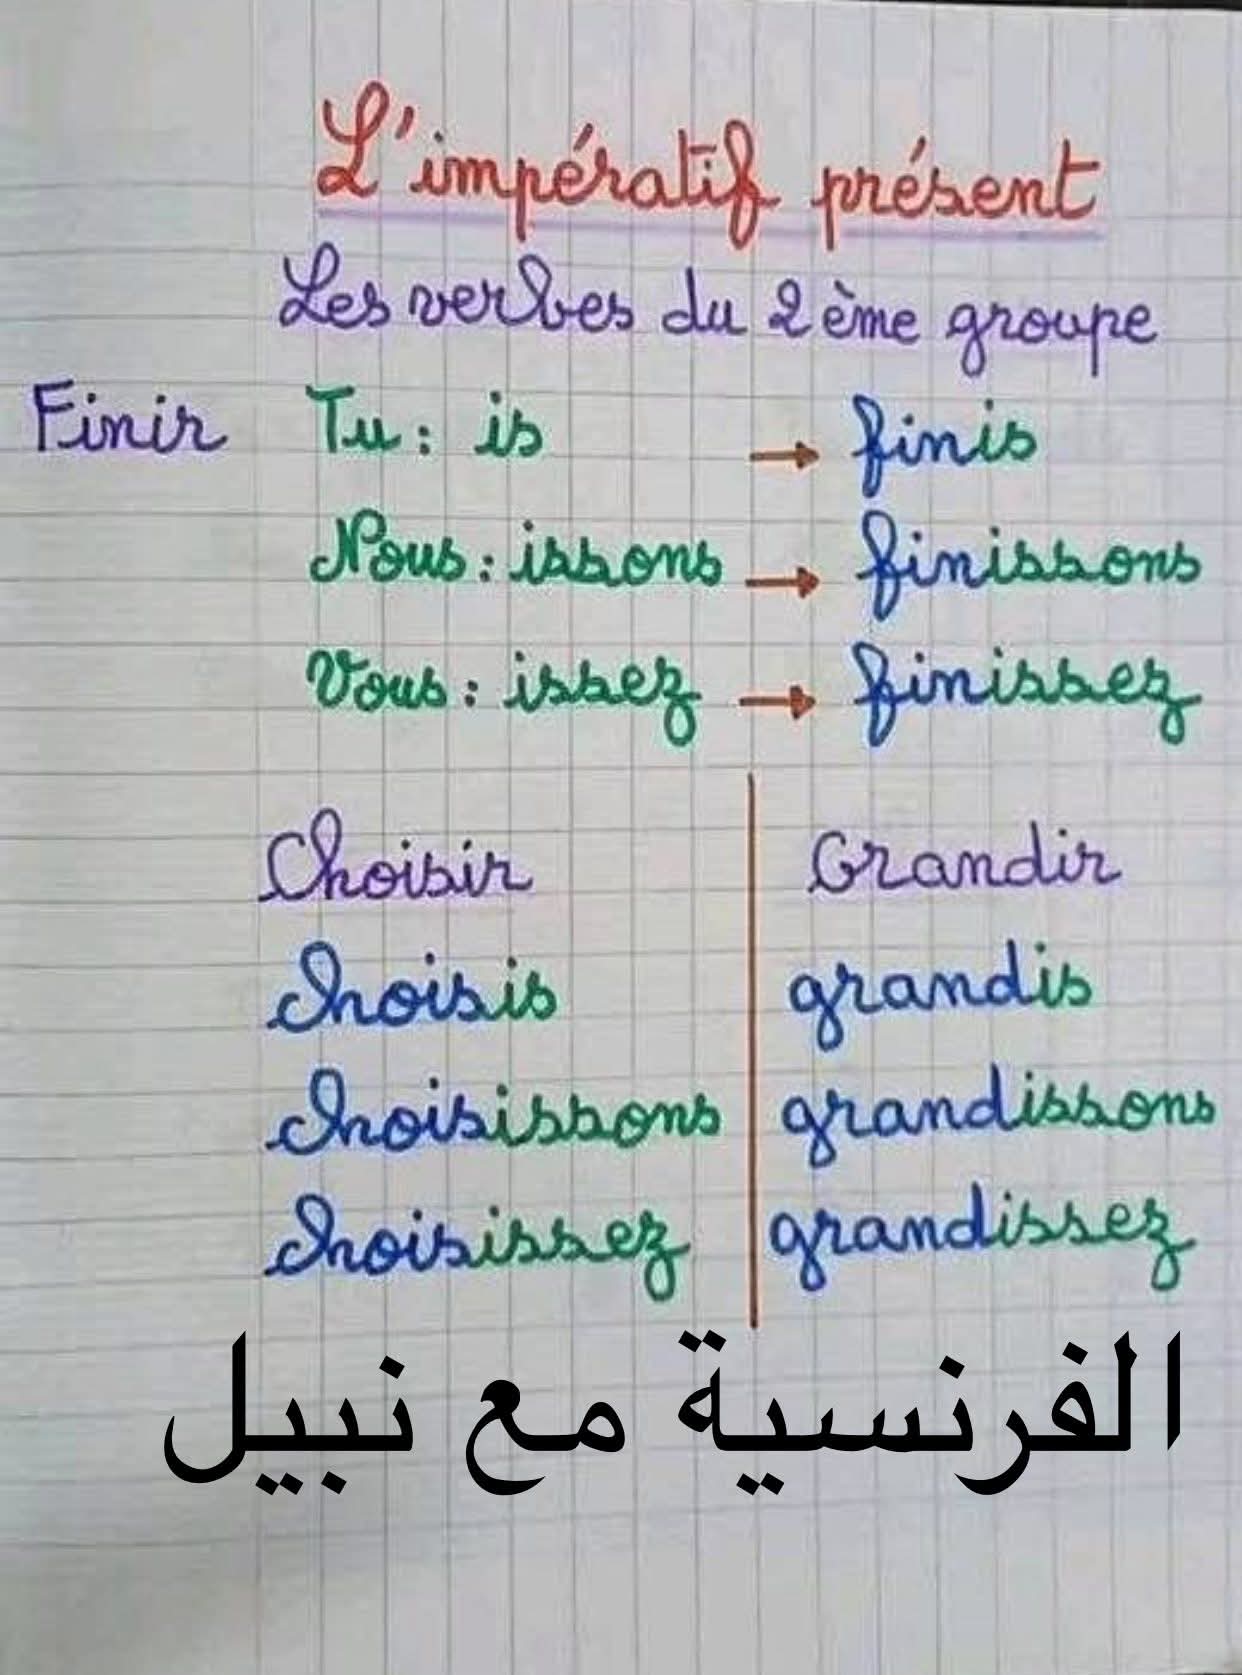 L'impératif présent
Les verbes du 2ème groupe
Finir Tu : is → finis
Nous : issons → finissons
Vous : issez → finissez
Choisir Grandir
choisis grandis
choisissons grandissons
choisissez grandissez
الفرنسية مع نبيل